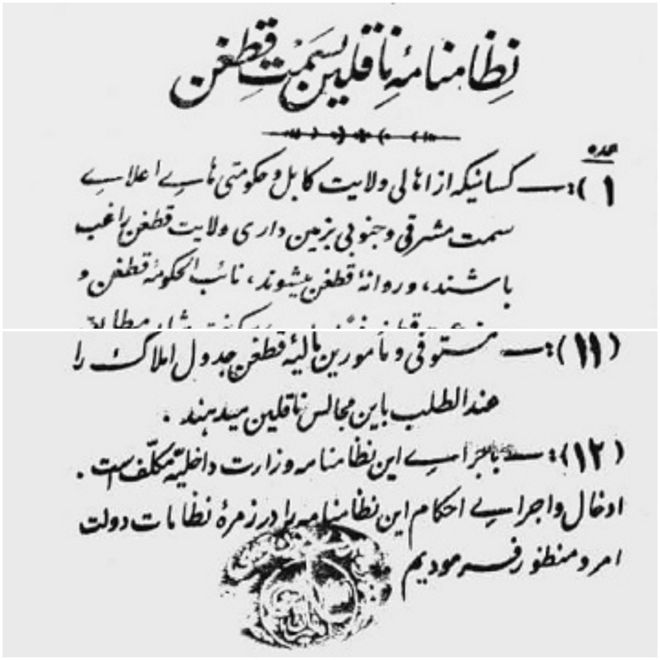 نظامنامهٔ ناقلین بسمت قطغن
ماده
(۱):— کسانیکه از اهالی ولایت کابل و حکومتی هاے اعلاے
سمت مشرقی و جنوبی بزمین داری ولایت قطغن راغب
باشند، و روانهٔ قطغن میشوند، نائب الحکومهٔ قطغن و
(۱۱):— مستوفی و مأمورین مالیهٔ قطغن جدول املاک را
عندالطلب باین مجالس ناقلین میدهند .
(۱۲):— باجراے این نظامنامه وزارت داخلیه مکلف است .
ادخال و اجراے احکام این نظامنامه را در زمرهٔ نظامات دولت
امر و منظور فرمودیم